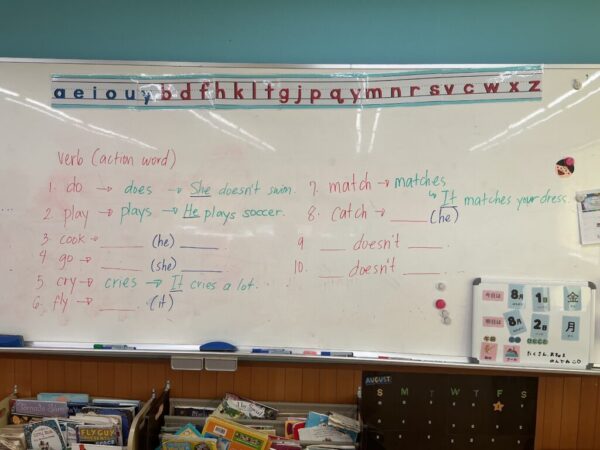 a e i o u y b d f h k l t g j p q y m n r s v c w x z
verb (action word)
1. do → does → She doesn't swim.
2. play → plays → He plays soccer.
3. cook → ______ (he) ______
4. go → ______ (she) ______
5. cry → cries → It cries a lot.
6. fly → ______. (it)
7. match → matches
↳ It matches your dress.
8. catch → ______ (he)
9 ___ doesn't ____
10. ___ doesn't ____.
今日は 8月 1日 金
明日は 8月 2日 月
AUGUST
S M T W T F S
FLY GUY